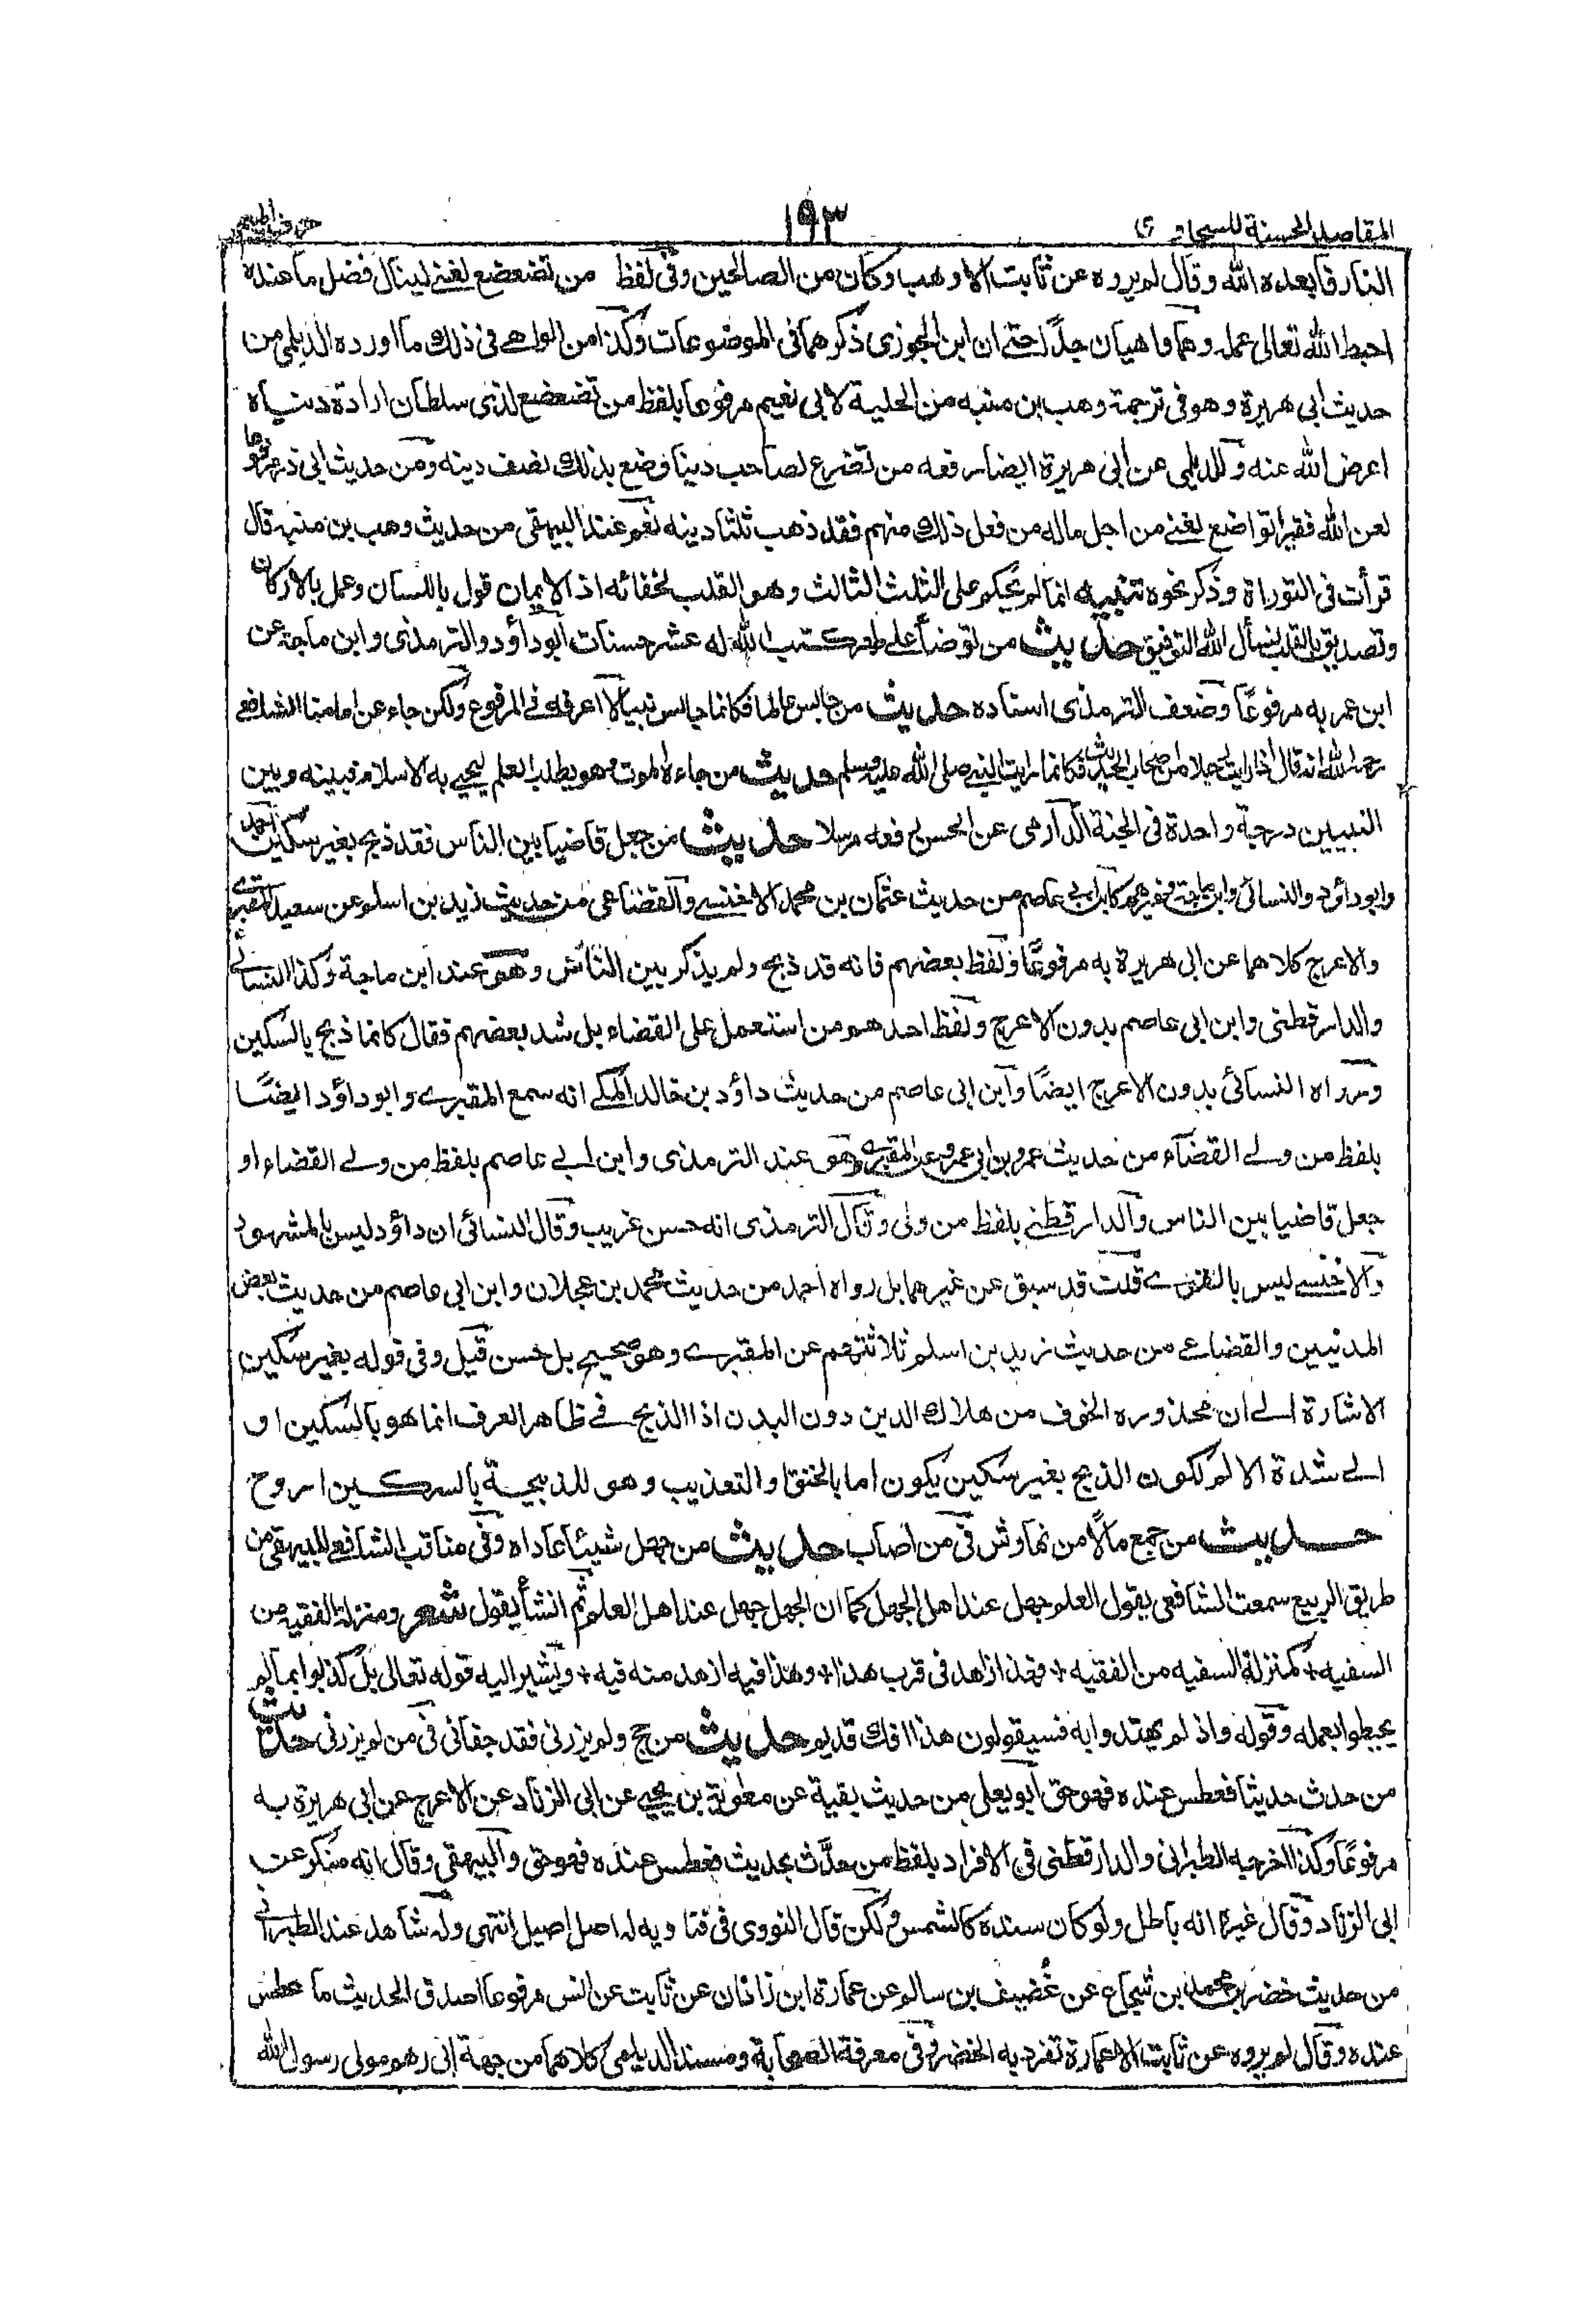 المقاصد الحسنة للسخاوى
١٩٣
حرف الميم
النار فابعده الله وقال لم يروه عن ثابت الا وهب وكان من الصالحين وفى لفظ من تضعضع لغنے لينال فضل ما عنده
احبط الله تعالى عمله وهما واهيان جدًّا حتے ان ابن الجوزى ذكرهما فى الموضوعات وكذا من الواهے فى ذلك ما اورده الديلمى من
حديث ابى هريرة وهو فى ترجمة وهب بن منبه من الحلية لابى نعيم مرفوعا بلفظ من تضعضع لذى سلطان ارادة دنياه
اعرض الله عنه وللديلمى عن ابى هريرة ايضا رفعه من تضرع لصاحب دنيا وضع بذلك نصف دينه ومن حديث ابى ذر مرفوعا
لعن الله فقيرا تواضع لغنے من اجل ماله من فعل ذلك منهم فقد ذهب ثلثا دينه نعم عند البيهقى من حديث وهب بن منبه قال
قرأت فى التوراة وذكر نحوه تنبيه انما لم يحكم على الثلث الثالث وهو القلب لخفائه اذ الايمان قول باللسان وعمل بالاركان
وتصديق بالقلب نسأل الله التوفيق حديث من توضأ على طهر كتب الله له عشر حسنات ابو داؤد والترمذى وابن ماجة عن
ابن عمر به مرفوعًا وضعف الترمذى اسناده حديث من جالس عالما فكانما جالس نبيا لا اعرفه فے المرفوع ولكن جاء عن امامنا الشافعے
رحمه الله انه قال اذا رايت رجلا من اصحاب الحديث فكانما رايت النبے صلى الله عليه وسلم حديث من جاءه الموت وهو يطلب العلم ليحيے به الاسلام فبينه وبين
النبيين درجة واحدة فى الجنة الدارمى عن الحسن رفعه مرسلا حديث من جعل قاضيا بين الناس فقد ذبح بغير سكين احمد
وابو داؤد والنسائى وابن ماجة وغيرهم كابن ابے عاصم من حديث عثمان بن محمد الاخنسے والقضاعى من حديث زيد بن اسلم عن سعيد المقبرے
والاعرج كلاهما عن ابى هريرة به مرفوعًا ولفظ بعضهم فانه قد ذبح ولم يذكر بين الناس وهو عند ابن ماجة وكذا النسائے
والدارقطنى وابن ابى عاصم بدون الاعرج ولفظ احدهم من استعمل على القضاء بل شد بعضهم فقال كانما ذبح بالسكين
ورواه النسائى بدون الاعرج ايضًا وابن ابى عاصم من حديث داؤد بن خالد المكے انه سمع المقبرے وابو داؤد ايضًا
بلفظ من ولے القضاء من حديث عمرو بن ابى عمرو عن المقبرے وهو عند الترمذى وابن ابے عاصم بلفظ من ولے القضاء او
جعل قاضيا بين الناس والدارقطنے بلفظ من ولى وقال الترمذى انه حسن غريب وقال النسائى ان داؤد ليس بالمشهور
والاخنسے ليس بالقوى قلت قد سبق عن غيرهما بل رواه احمد من حديث محمد بن عجلان وابن ابى عاصم من حديث بعض
المدنيين والقضاعے من حديث زيد بن اسلم ثلاثتهم عن المقبرے وهو صحيح بل حسن قيل وفى قوله بغير سكين
الاشارة الے ان محذوره الخوف من هلاك الدين دون البدن اذ الذبح فے ظاهر العرف انما هو بالسكين او
الے شدة الالم لكون الذبح بغير سكين يكون اما بالخنق او التعذيب وهو للذبيحة بالسكين اروح
حديث من جمع مالًا من نهاوش فى من اصاب حديث من جهل شيئا عاداه وفى مناقب الشافعے للبيهقى من
طريق الربيع سمعت الشافعى يقول العلم جهل عند اهل الجهل كما ان الجهل جهل عند اهل العلم ثم انشأ يقول شعر ومنزلة الفقيه من
السفيه + كمنزلة السفيه من الفقيه + فهذا زاهد فى قرب هذا + وهذا فيه ازهد منه فيه + ويشير اليه قوله تعالى بل كذبوا بما لم
يحيطوا بعلمه وقوله واذ لم يهتدوا به فسيقولون هذا افك قديم حديث من حج ولم يزرنى فقد جفانى فى من لم يزرنى حديث
من حدث حديثا فعطس عنده فهو حق ابو يعلى من حديث بقية عن معوية بن يحيے عن ابى الزناد عن الاعرج عن ابى هريرة به
مرفوعًا وكذا اخرجه الطبرانى والدارقطنى فى الافراد بلفظ من حدَّث بحديث فعطس عنده فهو حق والبيهقى وقال انه منكر عن
ابى الزناد وقال غيره انه باطل ولو كان سنده كالشمس ولكن قال النووى فى فتاويه له اصل اصيل انتهى وله شاهد عند الطبرانے
من حديث خضر بن محمد بن شجاع عن غُضيف بن سالم عن عمارة ابن زاذان عن ثابت عن انس مرفوعا اصدق الحديث ما عطس
عنده وقال لم يروه عن ثابت الا عمارة تفرد به الخضر وفى معرفة الصحابة ومسند الديلمى كلاهما من جهة ابى رهم مولى رسول الله